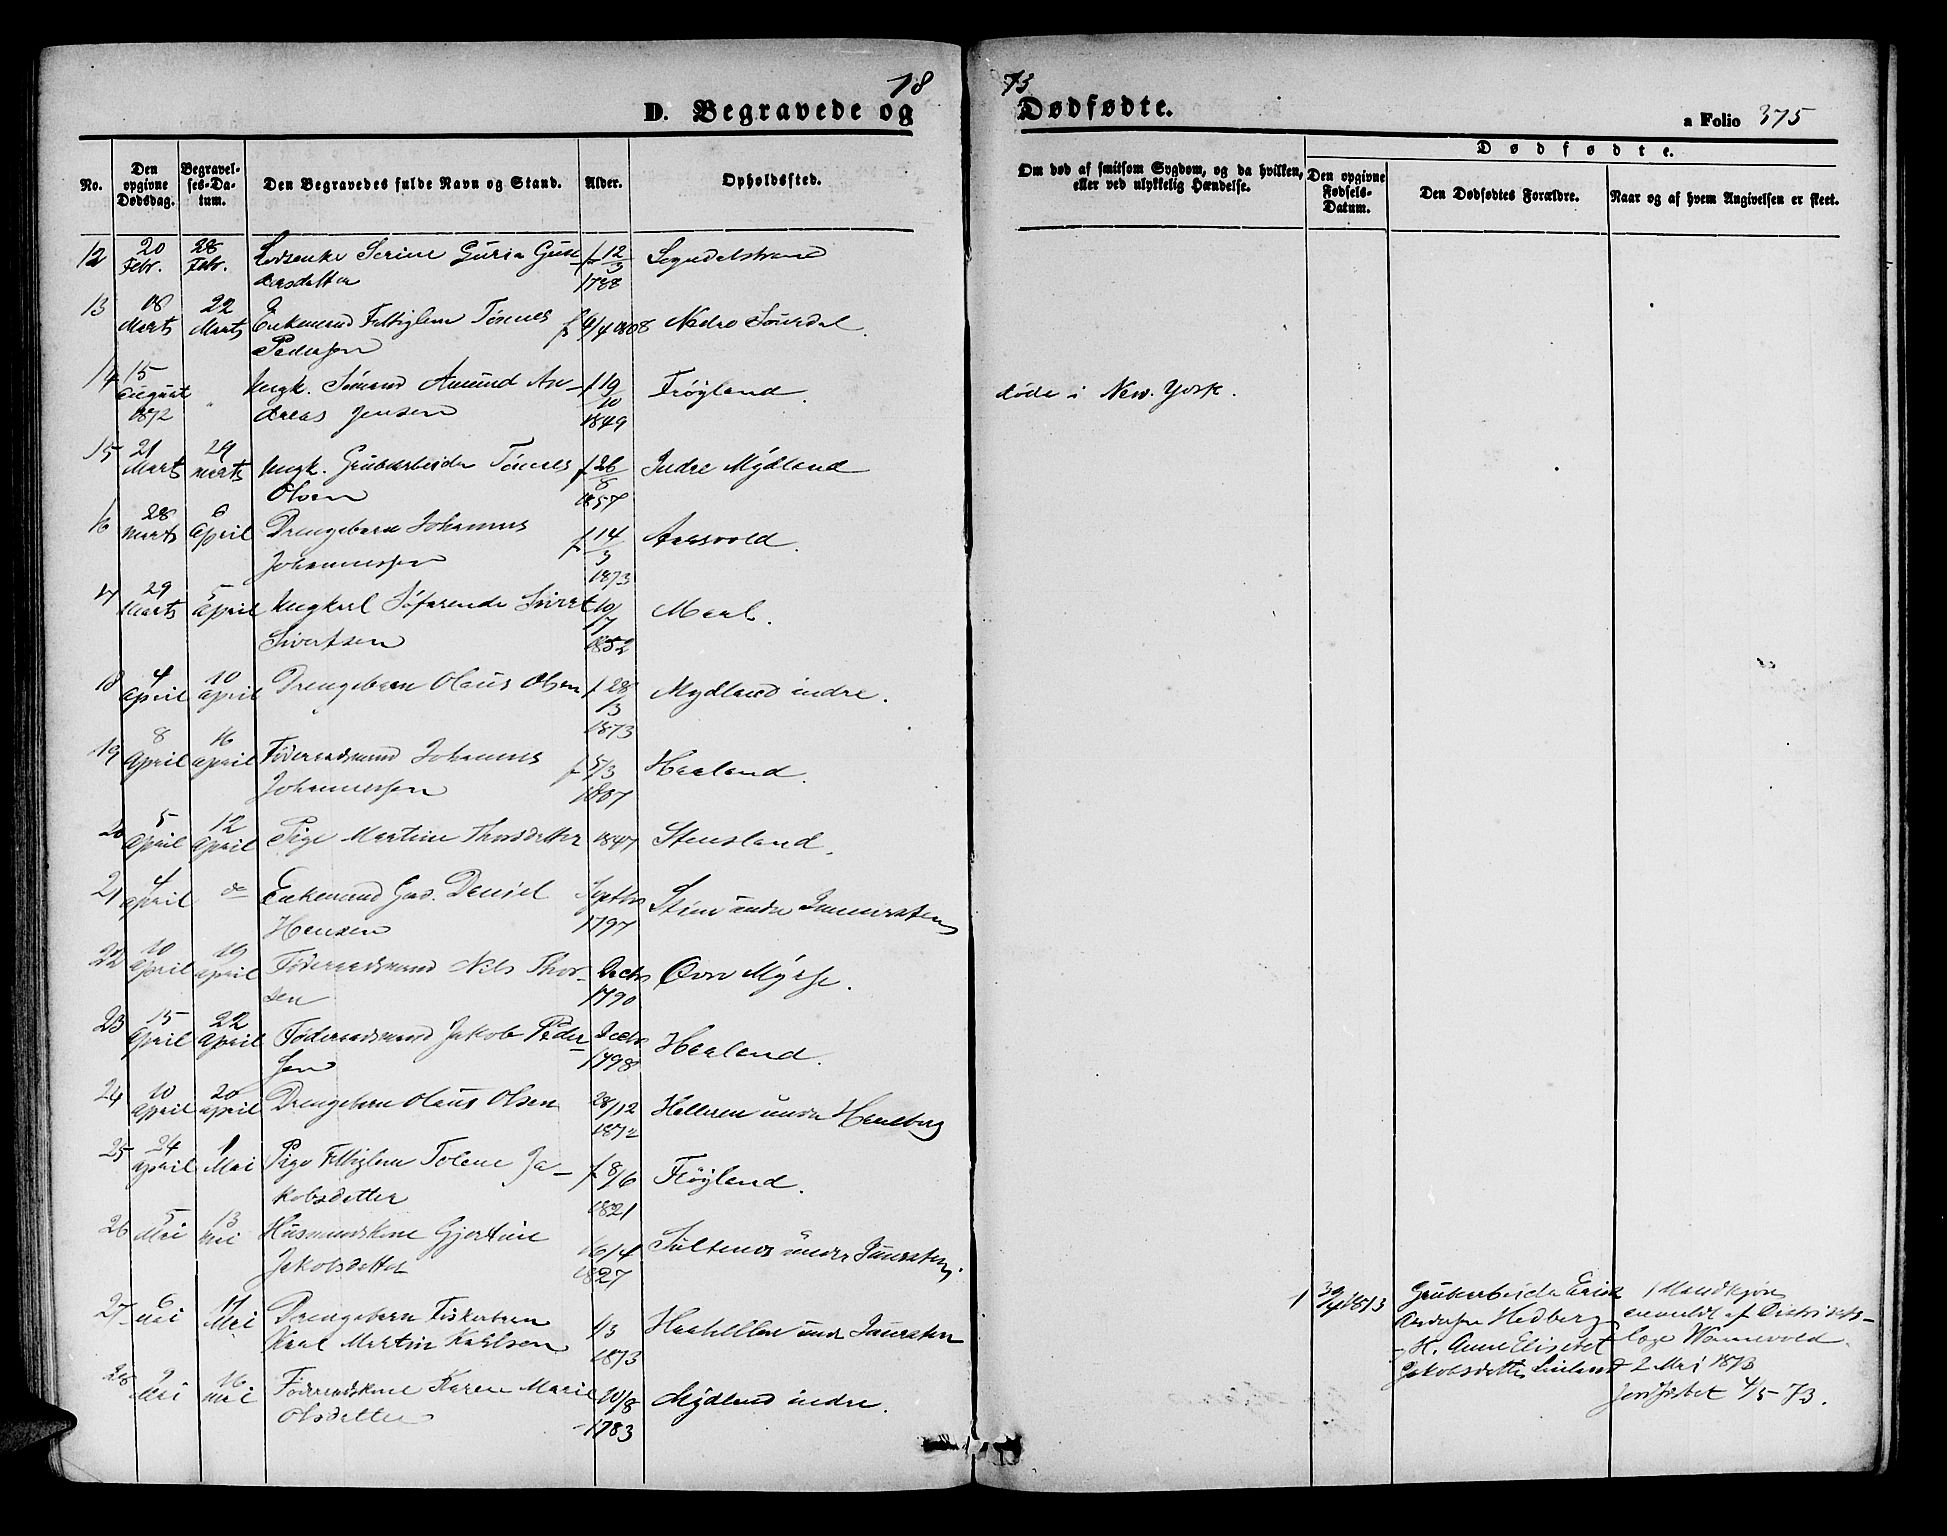 18
73
D. Begravede og
Dødfødte.
a Folio 375
No.
Den opgivne Dødsdag.
Begravelses-Datum.
Den Begravedes fulde Navn og Stand.
Alder.
Opholdssted.
Om død af smitsom Sygdom, og da hvilken,
eller ved ulykkelig Hændelse.
Dødfødte.
Den opgivne Fødsels-Datum.
Den Dødfødtes Forældre.
Naar og af hvem Angivelsen er skeet.
12 20 Febr. 28 Febr. Serine Guria
datter f 12/3 1788
13 18 Marts 22 Marts Enkemand Tønnes f 6/4 1808 Nedre
Pedersen
14 15 August 1872 " Ungk. Sømand Amund An- f 19/10 1849 Frøyland. døde i New. York.
dreas Jensen
15 21 Marts 29 Marts Ungk. Grubearbeider Tønnes f 26/8 1857 Indre Mydland
Olsen
16 28 Marts 6 April Drengebarn Johannes f 14/3 1873 Aarsvold.
Johannessen
17 29 Marts 5 April Ungkarl Søfarende Sivert 19/7 1852
Sivertsen
18 4 April 10 April Drengebarn Olaus Olsen f 28/3 1873 Mydland indre.
19 8 April 16 April Føderaadsmand Johannes f 5/3 Haaland.
Johannessen
20 5 April 12 April Pige Martine Thorsdatter 1847 Stensland.
21 4 April do Enkemand Daniel Septbr 1797 under
Hansen
22 10 April 19 April Føderaadsmand Nils Thor- Decbr 1790
sen
23 15 April 22 April Føderaadsmand Jakob Peder- Decbr 1798 Haaland.
sen
24 10 April 20 April Drengebarn Olaus Olsen 28/12 1872 Helleren under
25 24 April 1 Mai Pige Tolene Ja- f 8/6 1821 Frøyland.
kobsdatter
26 5 Mai 13 Mai Husmandskone Gjertine 16/4 1827 under
Jakobsdatter
27 6 Mai 11 Mai Drengebarn 1/3 1873 under
Karl Martin Karlsen
28 9 Mai 16 Mai Føderaadskone Karen Marie 10/8 1783 Mydland indre.
Olsdatter
1 30/4 1873 Grubearbeider Erick
Andersen Hedberg
H. Anne Elisabet
Jakobsdatter
1 Mandkjøn
anmeldt af Districts-
læge
2 Mai 1873
Jordfæstet 4/5-73.